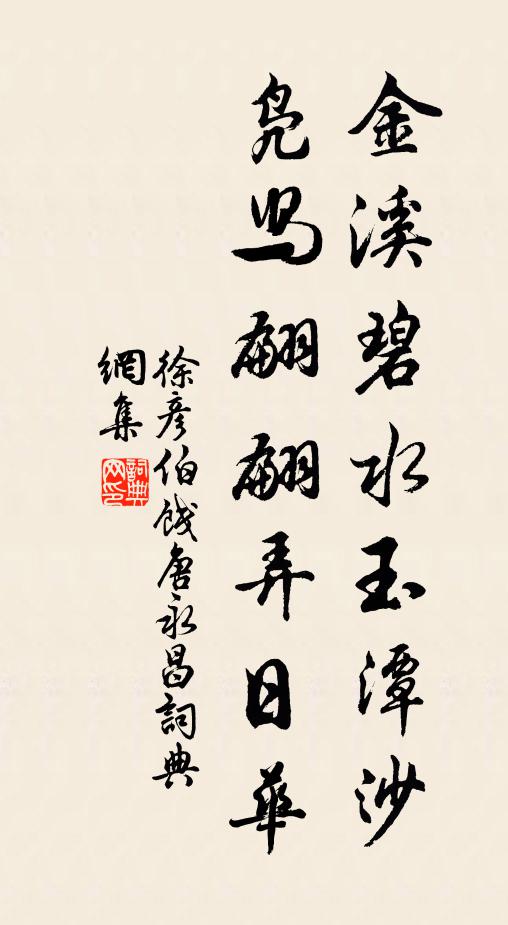 金溪碧水玉潭沙
凫舄翩翩弄日華
徐彦伯餞唐永昌詞典
網集
詞典網印